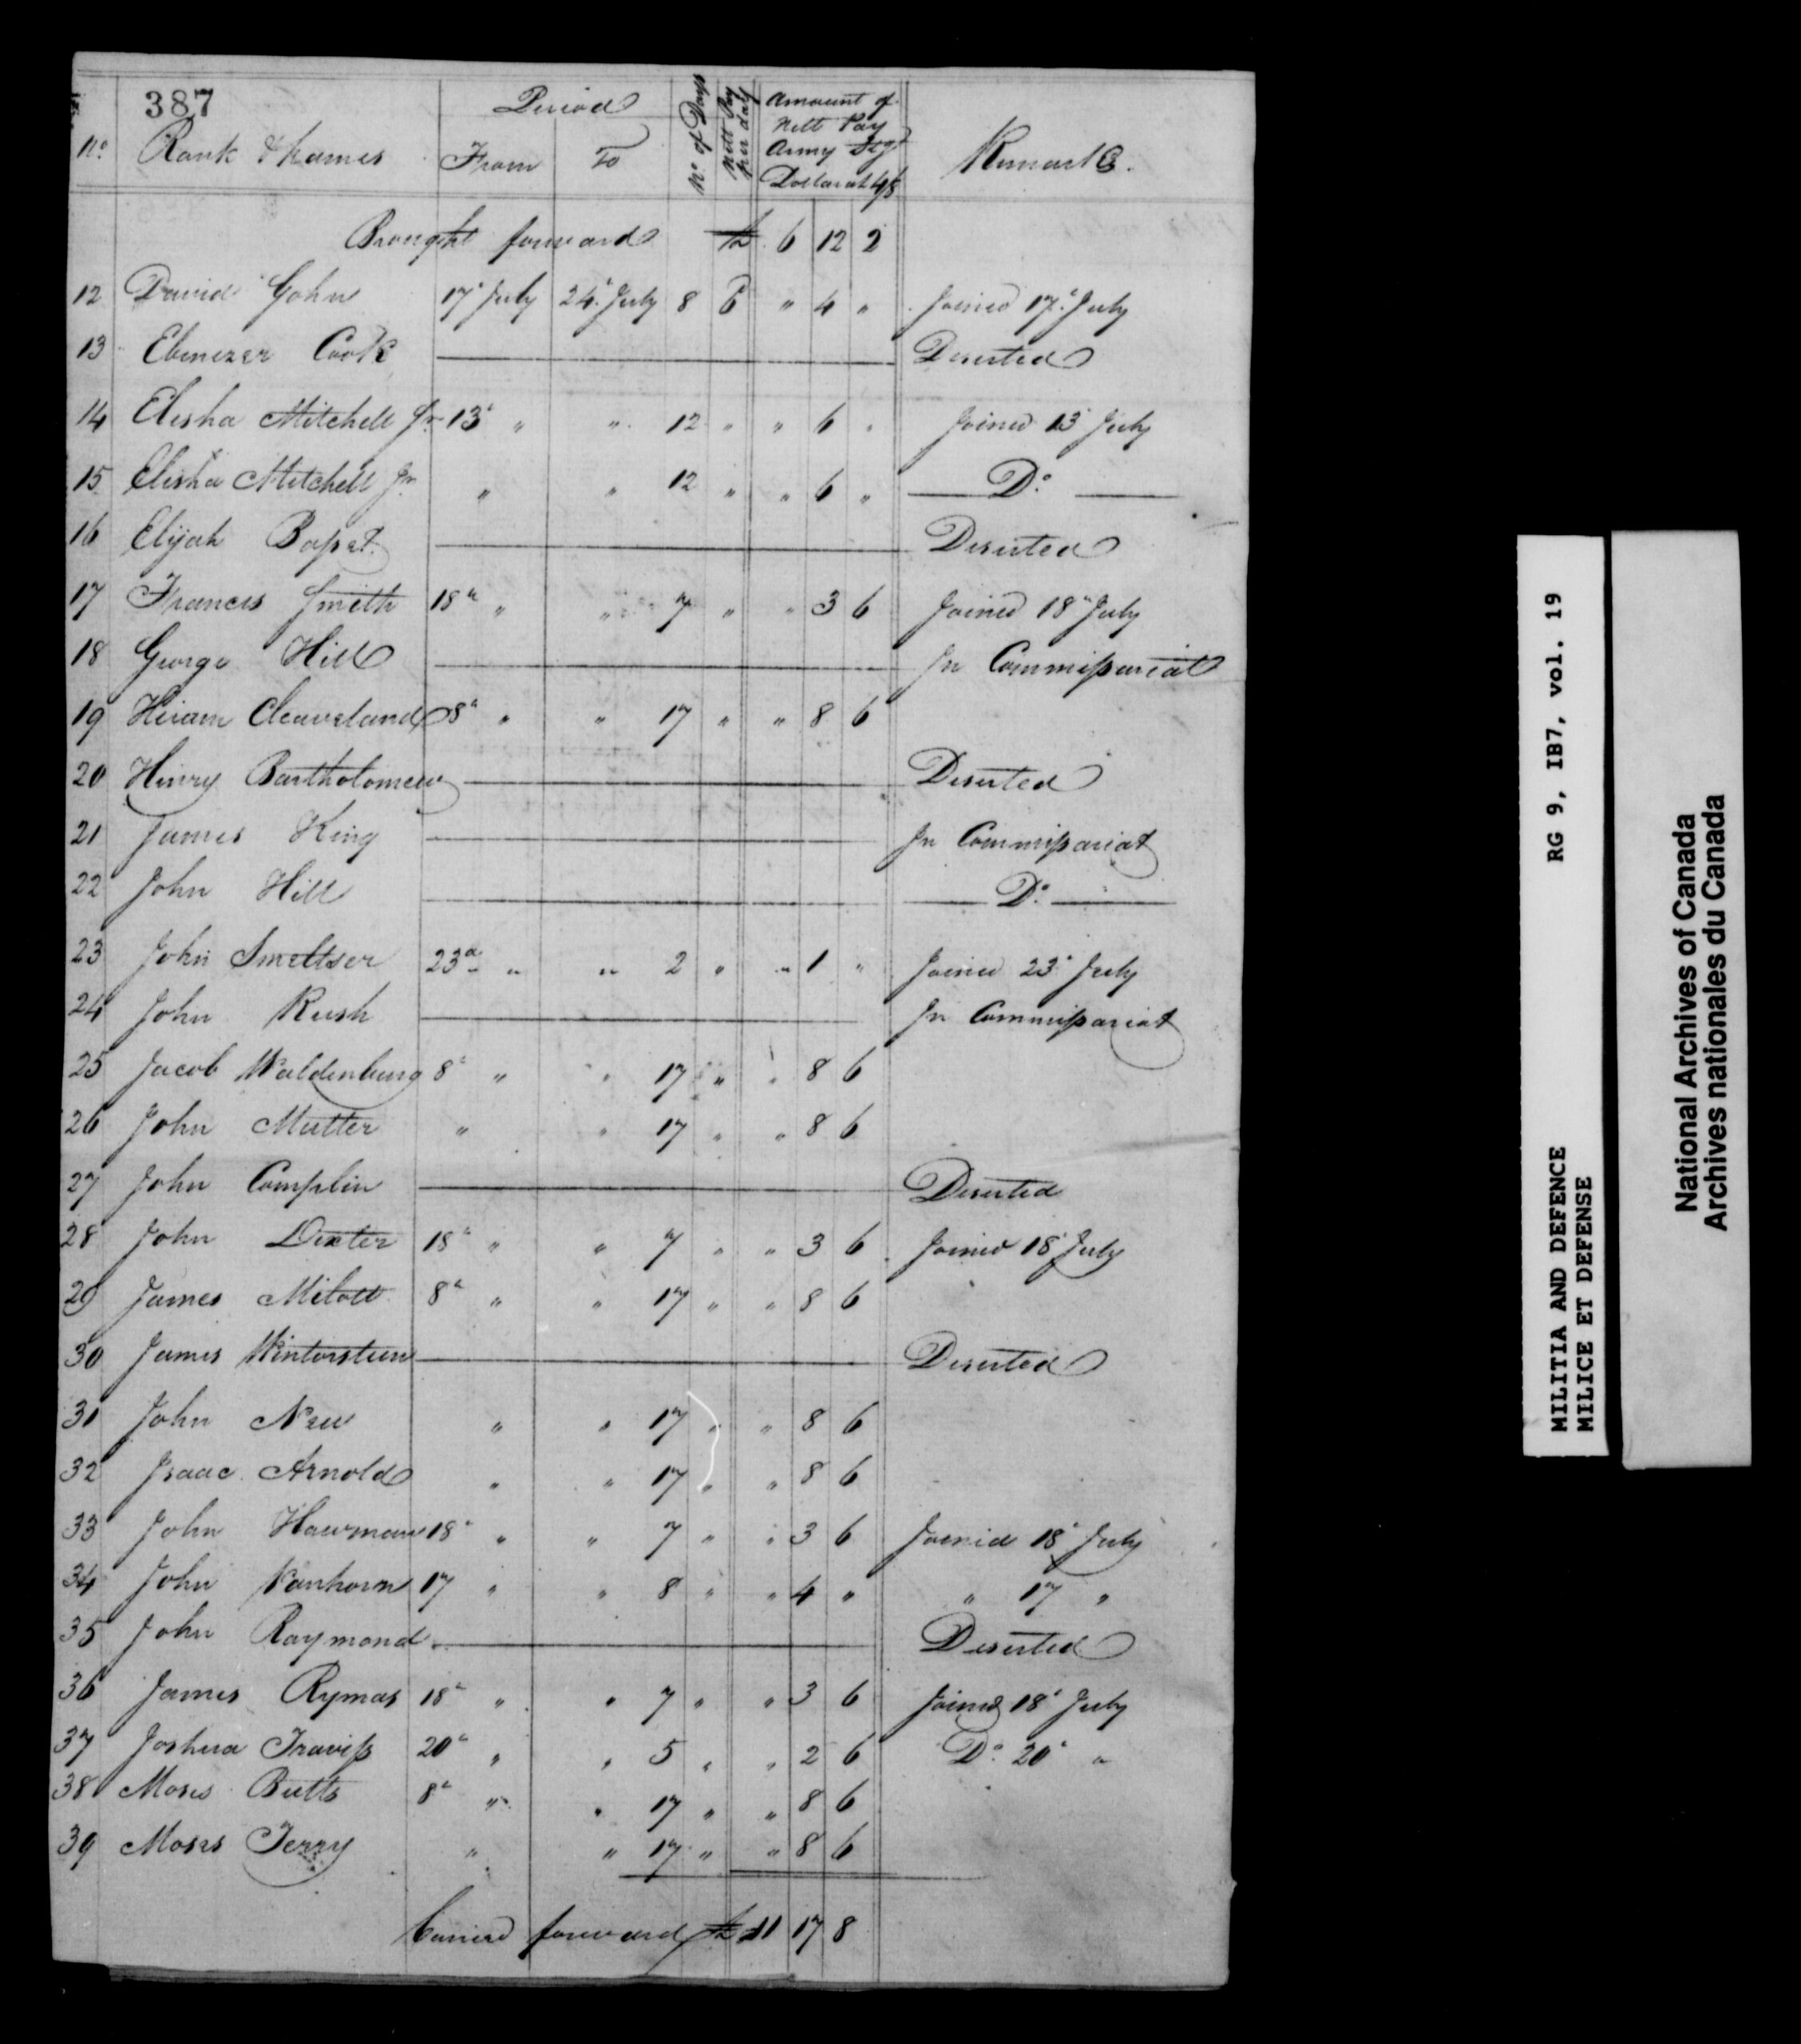 387
No. Rank & Names Period From To No. of Days Nett Pay per day Amount of Nett Pay Army Stg Dollar at 4/8 Remarks.
Brought forward £ 6 12 2
12 David John 17" July 24" July 8 6d " 4 " Joined 17" July
13 Ebenezer Cook Deserted
14 Elisha Mitchell Sr. 13" " " 12 " " 6 " Joined 13" July
15 Elisha Mitchell Jr. " " 12 " " 6 " Do.
16 Elijah Deserted
17 Francis Smith 18" " " 7 " " 3 6 Joined 18" July
18 George Hill In Commissariat
19 Hiram Cleaveland 8" " " 17 " " 8 6
20 Henry Bartholomew Deserted
21 James King In Commissariat
22 John Hill Do.
23 John Smeltser 23d " " 2 " " 1 " Joined 23" July
24 John Rush In Commissariat
25 Jacob Waldenburg 8" " " 17 " " 8 6
26 John Mutter " " 17 " " 8 6
27 John Complin Deserted
28 John Dexter 18" " " 7 " " 3 6 Joined 18" July
29 James Milott 8" " " 17 " " 8 6
30 James Wintersteen Deserted
31 John New " " 17 " " 8 6
32 Isaac Arnold " " 17 " " 8 6
33 John Hawman 18" " " 7 " " 3 6 Joined 18" July
34 John Vanhorn 17 " " 8 " " 4 " " 17 "
35 John Raymond Deserted
36 James Rymas 18" " " 7 " " 3 6 Joined 18" July
37 Joshua Traviss 20" " " 5 " " 2 6 Do. 20" "
38 Moses Butts 8" " " 17 " " 8 6
39 Moses Terry " " 17 " " 8 6
Carried forward £ 11 17 8
MILITIA AND DEFENCE RG 9, IB7, vol. 19
MILICE ET DEFENSE
National Archives of Canada
Archives nationales du Canada